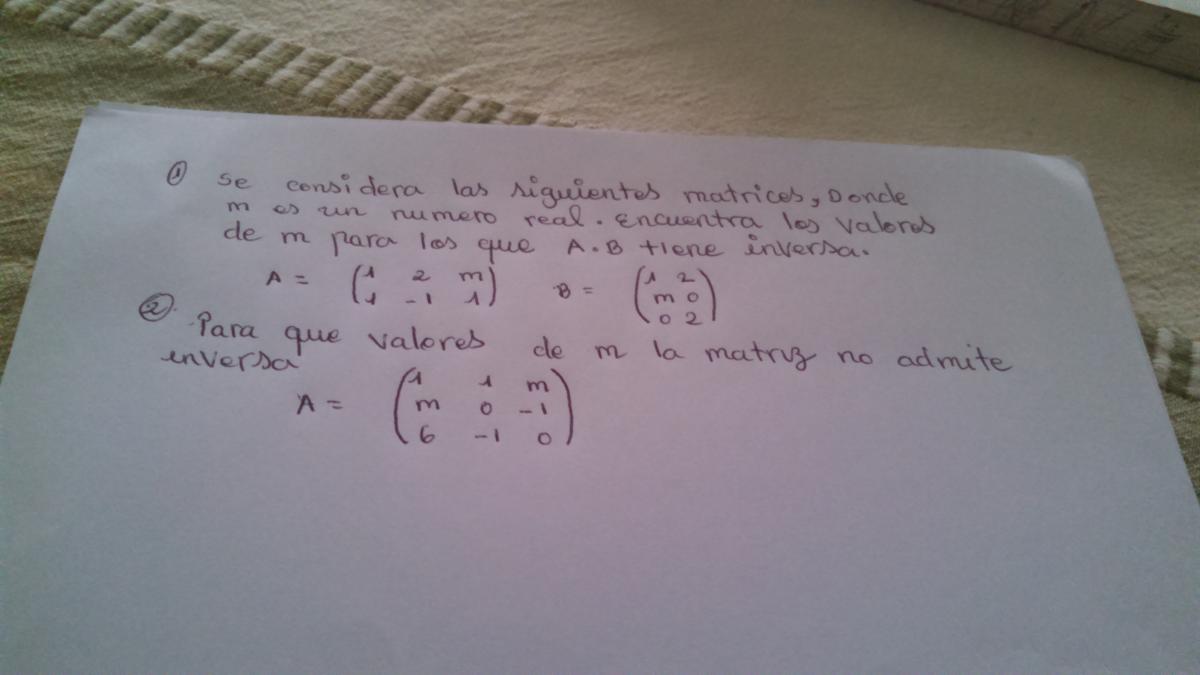 ① Se considera las siguientes matrices, Donde
m es un numero real. Encuentra los valores
de m para los que A.B tiene inversa.
A = (1 2 m
1 -1 1) B = (1 2
m 0
0 2)
② Para que valores de m la matriz no admite
inversa
A = (1 1 m
m 0 -1
6 -1 0)